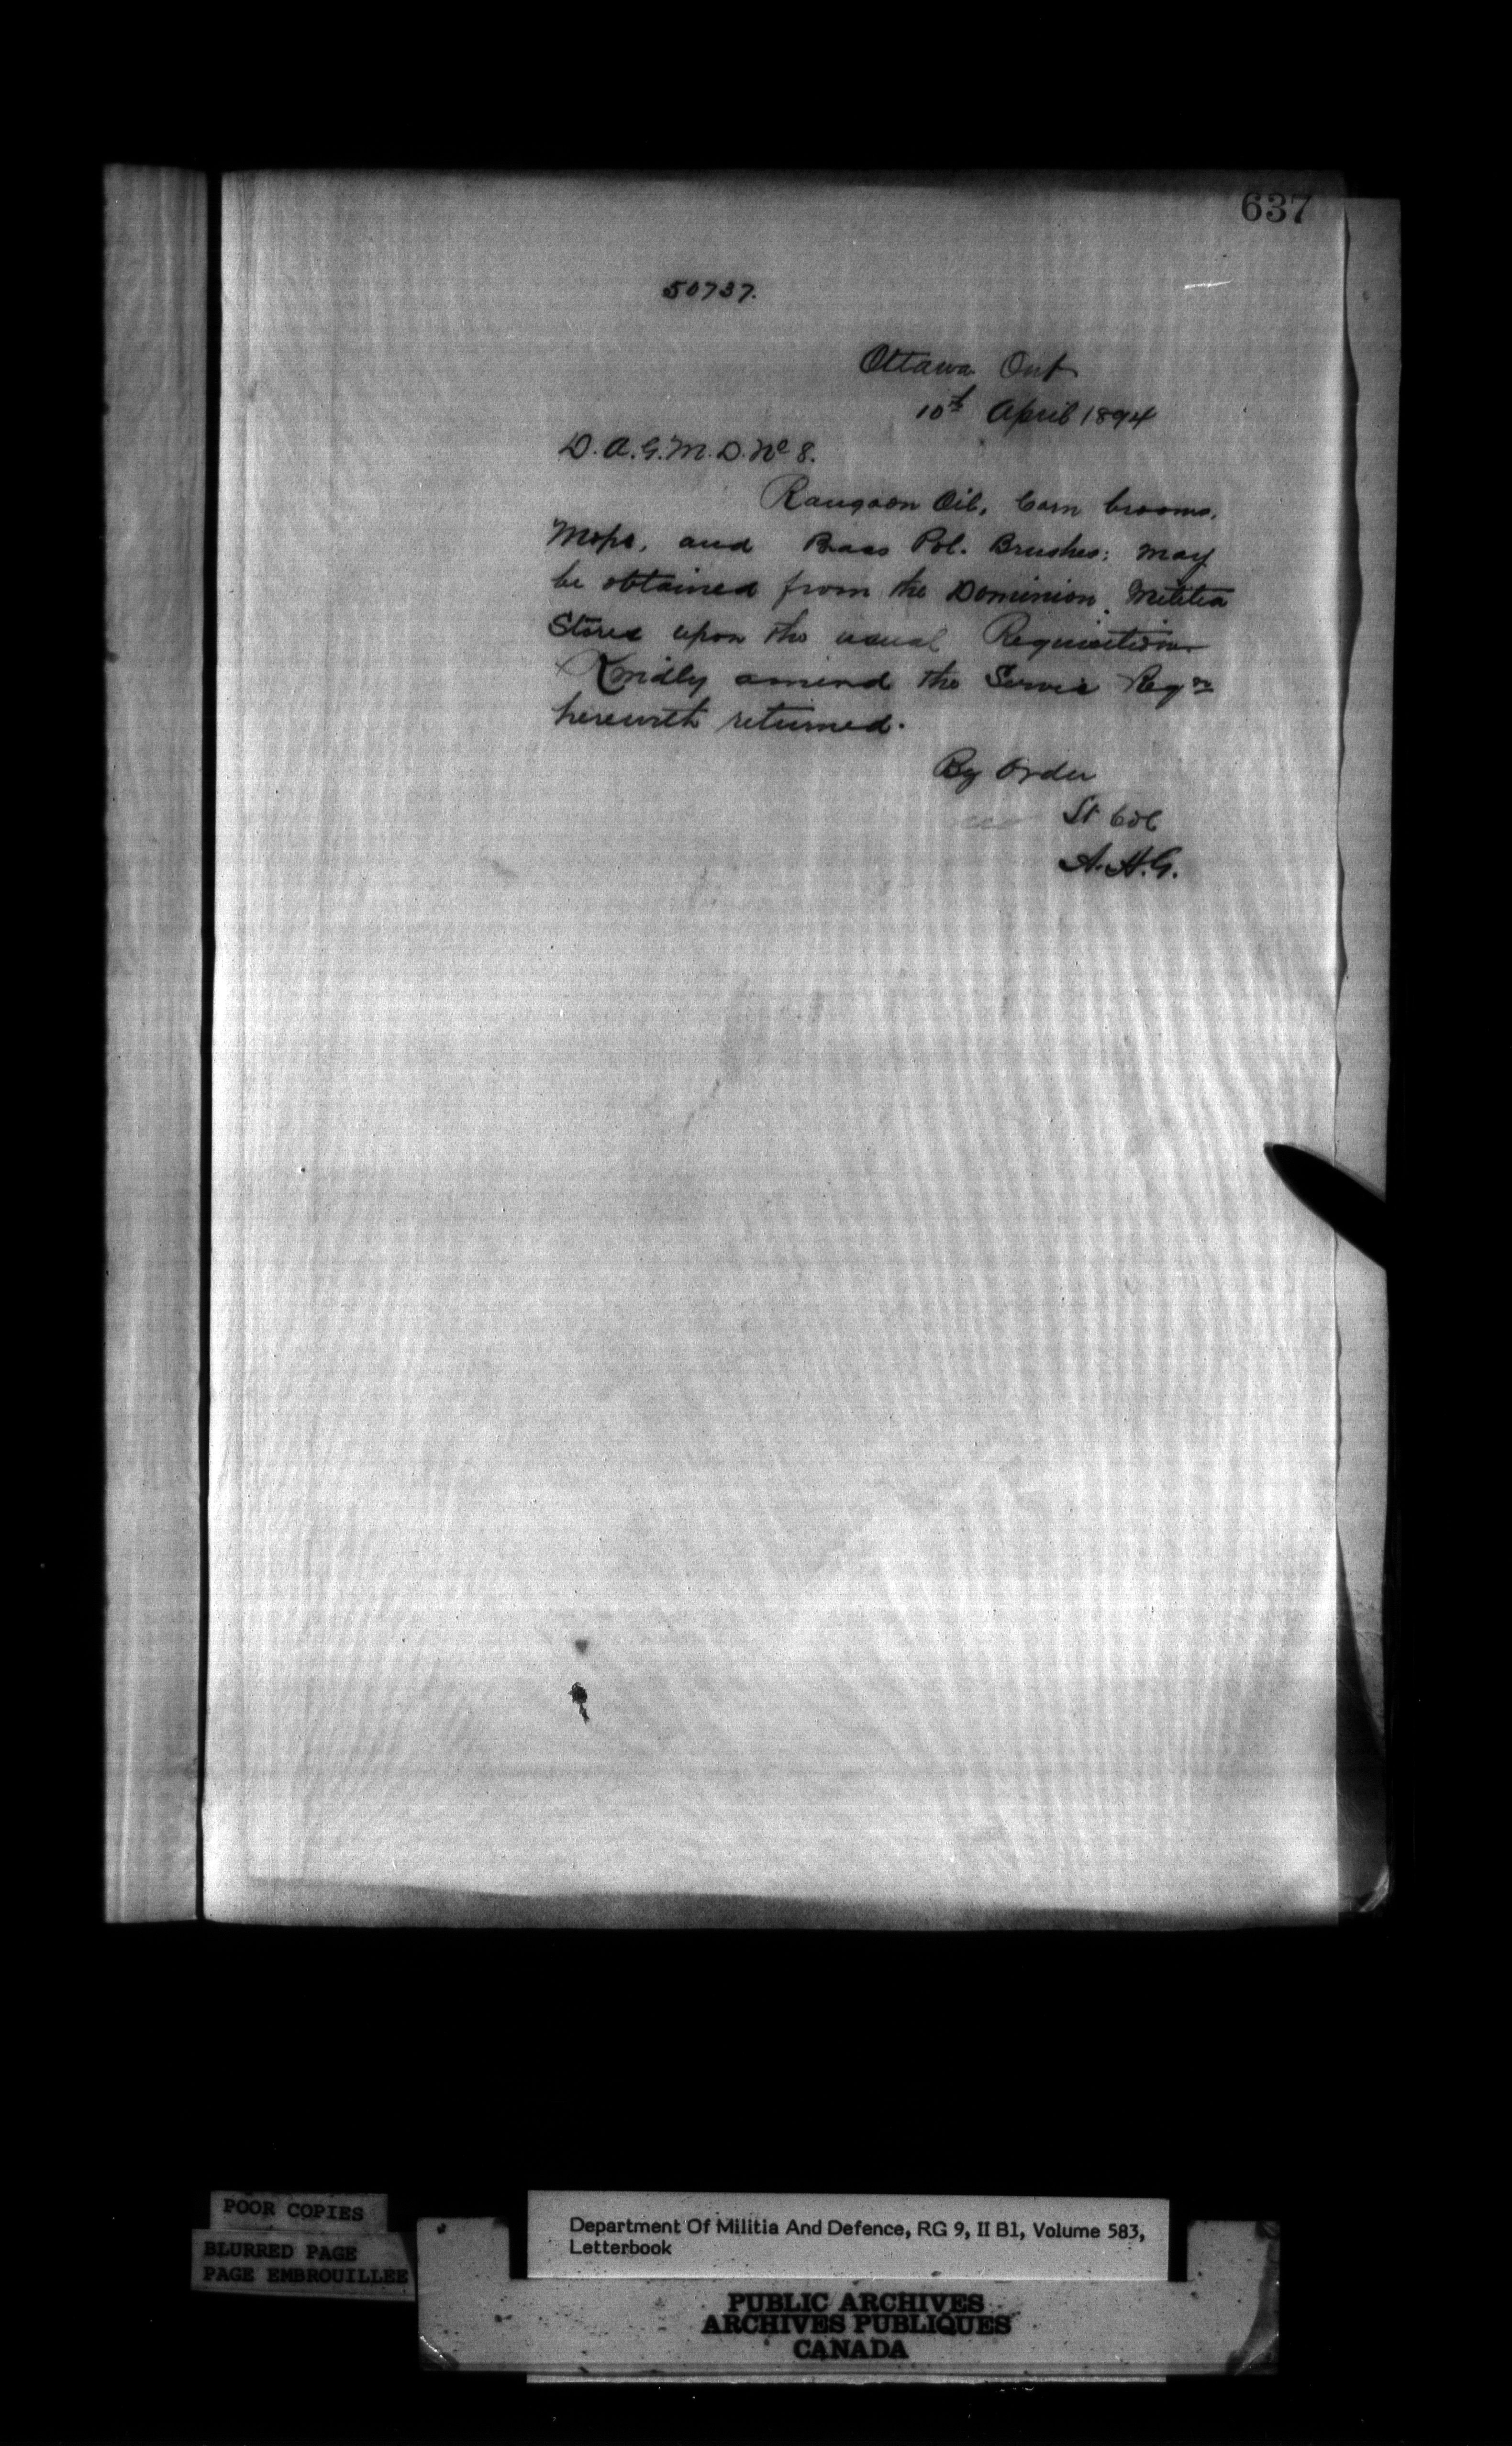 637
50737.
Ottawa Ont
10th April 1894
D.A.G.M.D. No 8.
Rangoon Oil, Corn brooms,
Mops, and Brass Pol. Brushes; may
be obtained from the Dominion Militia
Stores upon the usual Requisition
Kindly amend the Service Reqn
herewith returned.
By Order
Lt Col
A.A.G.
POOR COPIES
BLURRED PAGE
PAGE EMBROUILLEE
Department Of Militia And Defence, RG 9, II B1, Volume 583,
Letterbook
PUBLIC ARCHIVES
ARCHIVES PUBLIQUES
CANADA